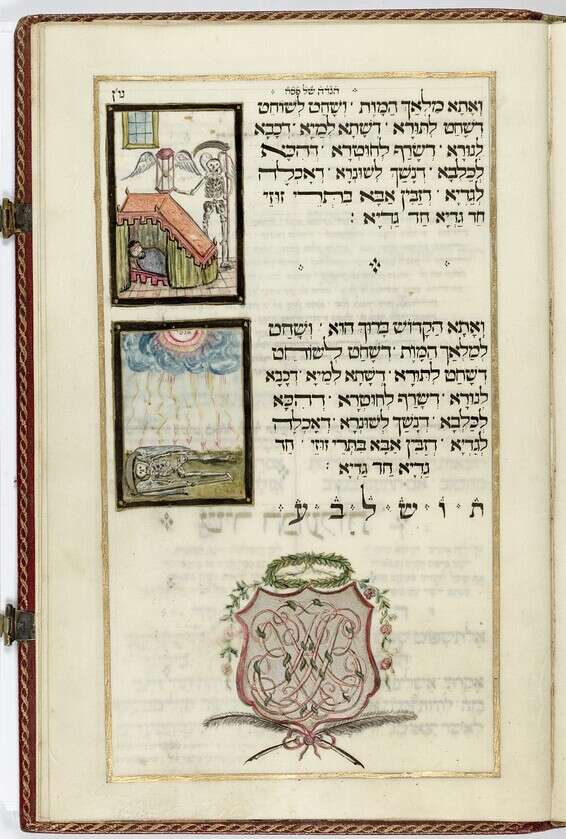 הגדה של פסח
ואתא מלאך המות · ושחט לשוחט
דשחט לתורא · דשתא למיא · דכבא
לנורא · דשרף לחוטרא · דהכא
לכלבא · דנשך לשונרא · דאכלה
לגדיא · דזבין אבא בתרי זוזי
חד גדיא חד גדיא :
ואתא הקדוש ברוך הוא · ושחט
למלאך המות · דשחט לשוחט
דשחט לתורא · דשתא למיא · דכבא
לנורא · דשרף לחוטרא · דהכא
לכלבא · דנשך לשונרא · דאכלה
לגדיא · דזבין אבא בתרי זוזי · חד
גדיא חד גדיא :
ת · ו · ש · ל · ב · ע